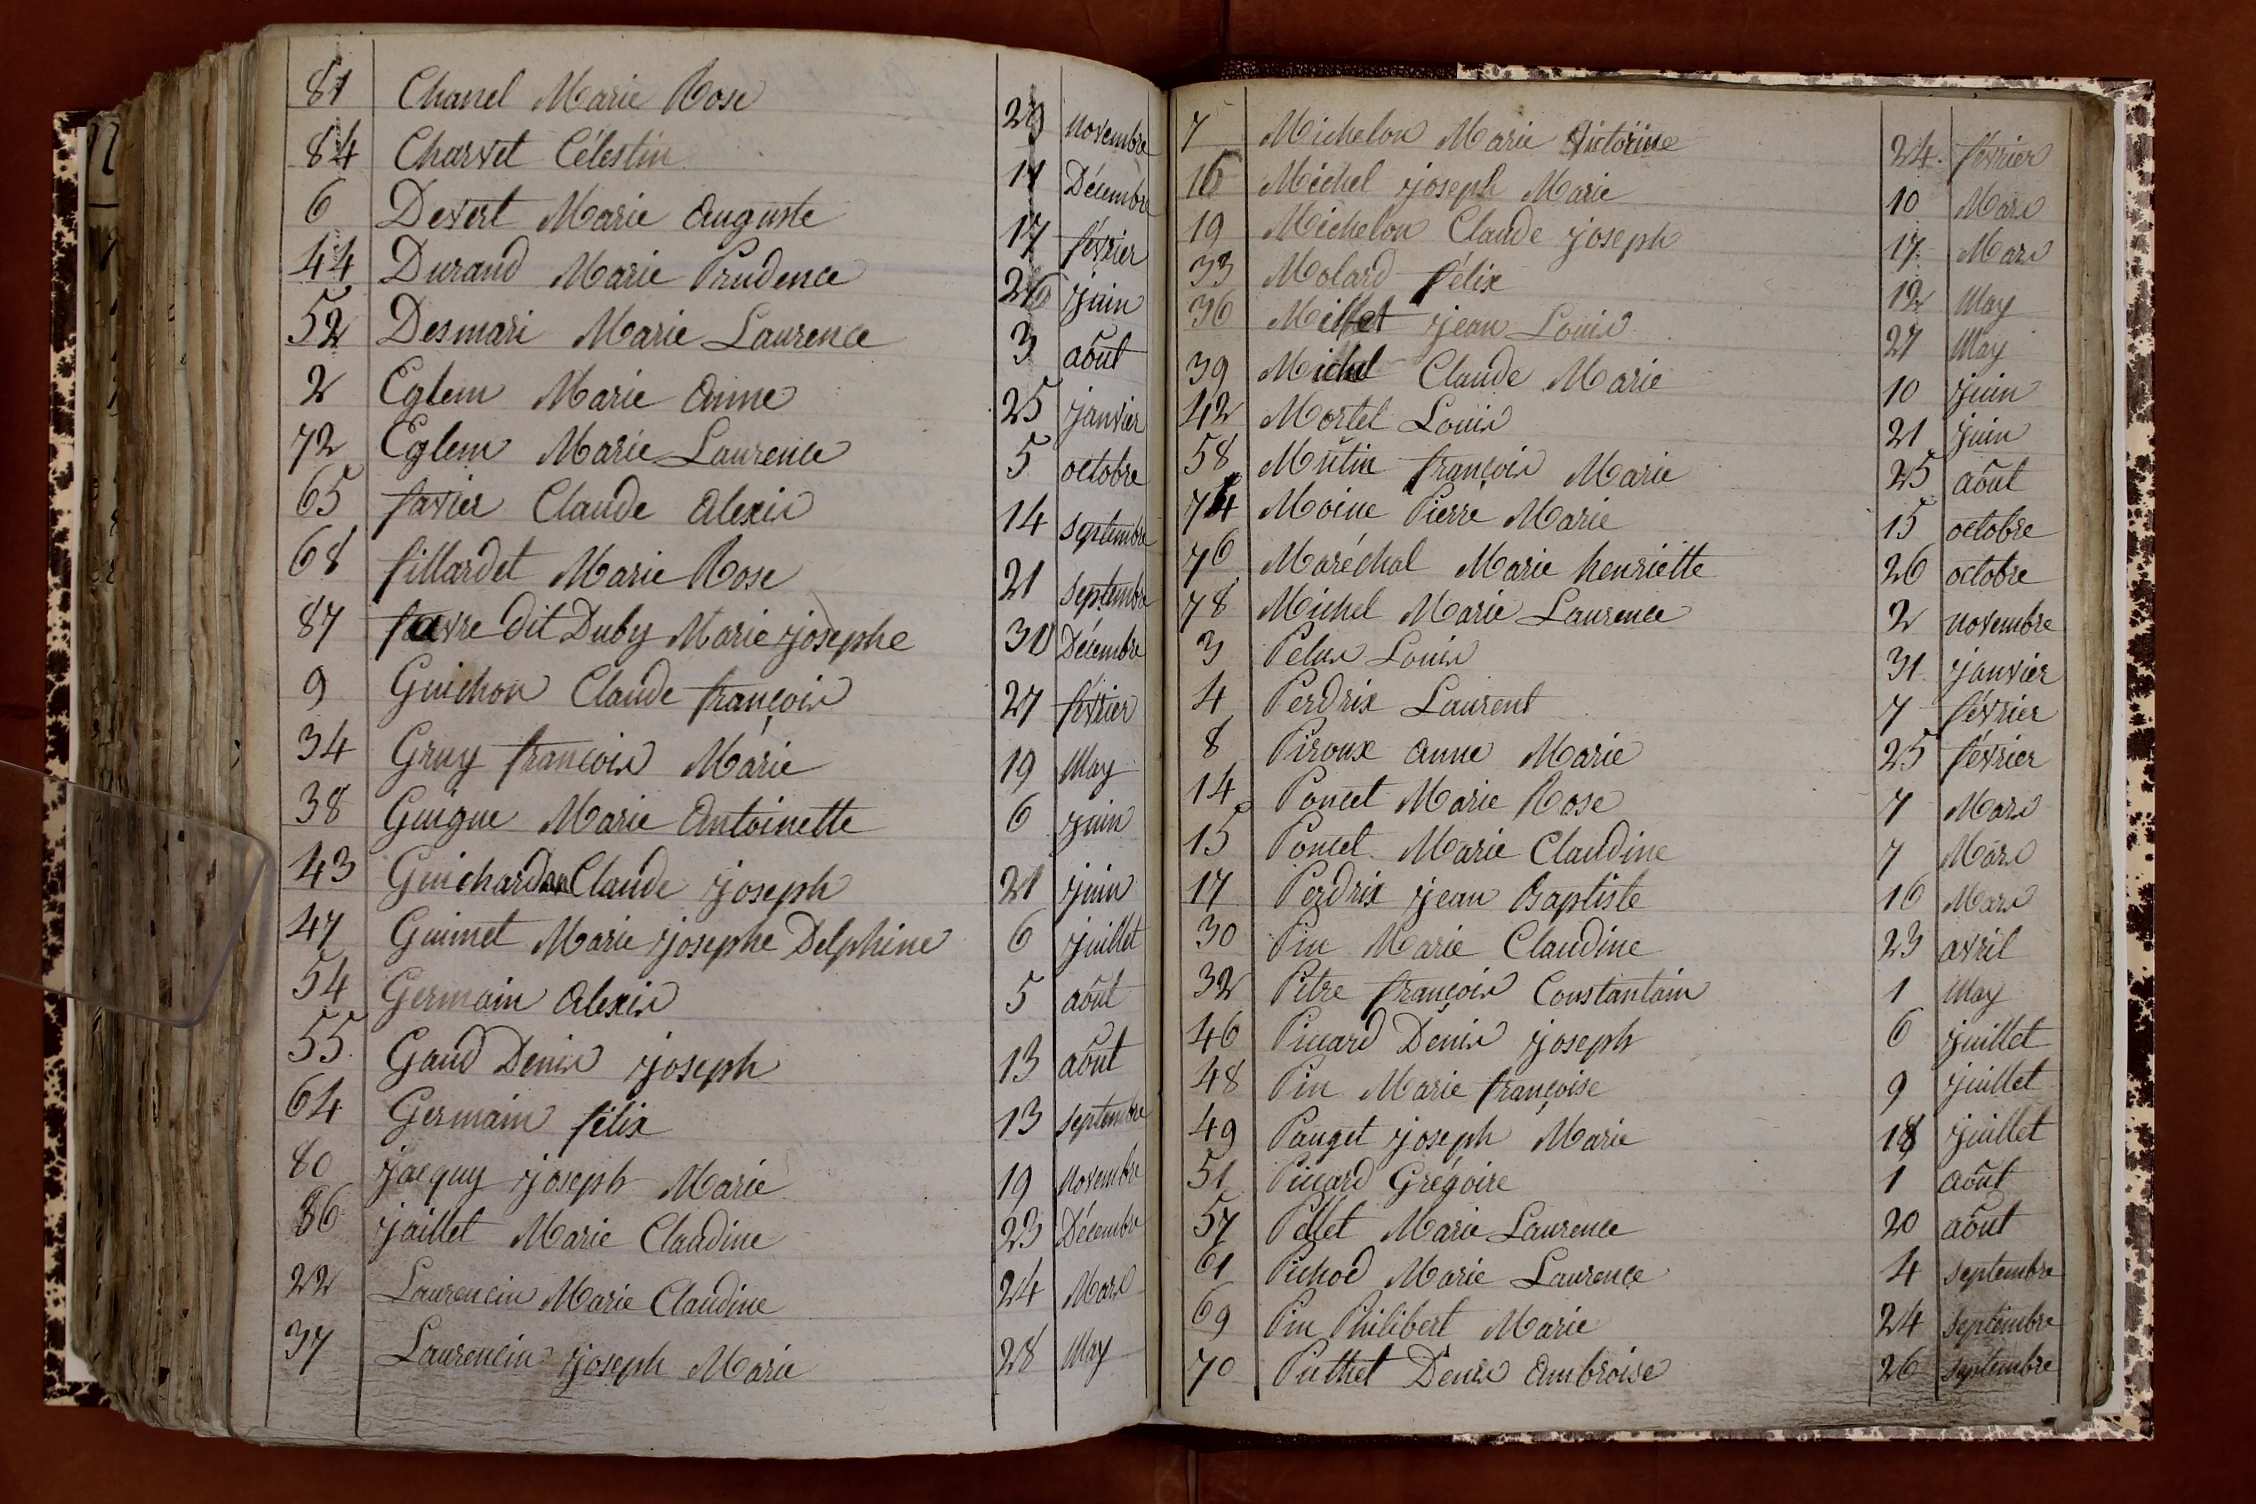 81 Chanel Marie Rose 29 novembre
84 Charvet Célestin 11 Décembre
6 Devert Marie auguste 17 février
44 Durand Marie Prudence 26 juin
52 Desmari Marie Laurence 3 aôut
2 Eglem Marie anne 25 janvier
72 Eglem Marie Laurence 5 octobre
65 favier Claude alexis 14 septembre
68 fillardet Marie Rose 21 septembre
87 favre dit Duby Marie josephe 30 Décembre
9 Guichon Claude françois 27 février
34 Gruy françois Marie 19 May
38 Guigue Marie antoinette 6 juin
43 Guichardan Claude joseph 21 juin
47 Guimet Marie josephe Delphine 6 juillet
54 Germain alexis 5 aôut
55 Gaud Denis joseph 13 aôut
64 Germain félix 13 septembre
80 jacquy joseph Marie 19 novembre
86 jaillet Marie Claudine 23 Décembre
22 Laurencin Marie Claudine 24 Mars
37 Laurencin joseph Marie 28 May
7 Michelon Marie Victorine 24 février
16 Michel joseph Marie 10 Mars
19 Michelon Claude joseph 17 Mars
33 Molard félix 12 May
36 Millet jean Louis 27 May
39 Michel Claude Marie 10 juin
42 Mortel Louis 21 juin
58 Mutin françois Marie 25 aôut
74 Moine Pierre Marie 15 octobre
76 Maréchal Marie henriette 26 octobre
78 Michel Marie Laurence 2 novembre
3 Pelus Louis 31 janvier
4 Perdrix Laurent 7 février
8 Piroux anne Marie 25 février
14 Poncet Marie Rose 7 Mars
15 Poncet Marie Claudine 7 Mars
17 Perdrix jean Baptiste 16 Mars
30 Pin Marie Claudine 23 avril
32 Pitre françois Constantain 1 May
46 Picard Denis joseph 6 juillet
48 Pin Marie françoise 9 juillet
49 Pauget joseph Marie 18 juillet
51 Picard Grégoire 1 aôut
57 Pellet Marie Laurence 20 aôut
61 Pichod Marie Laurence 4 septembre
69 Pin Philibert Marie 24 septembre
70 Puthet Denis ambroise 26 septembre